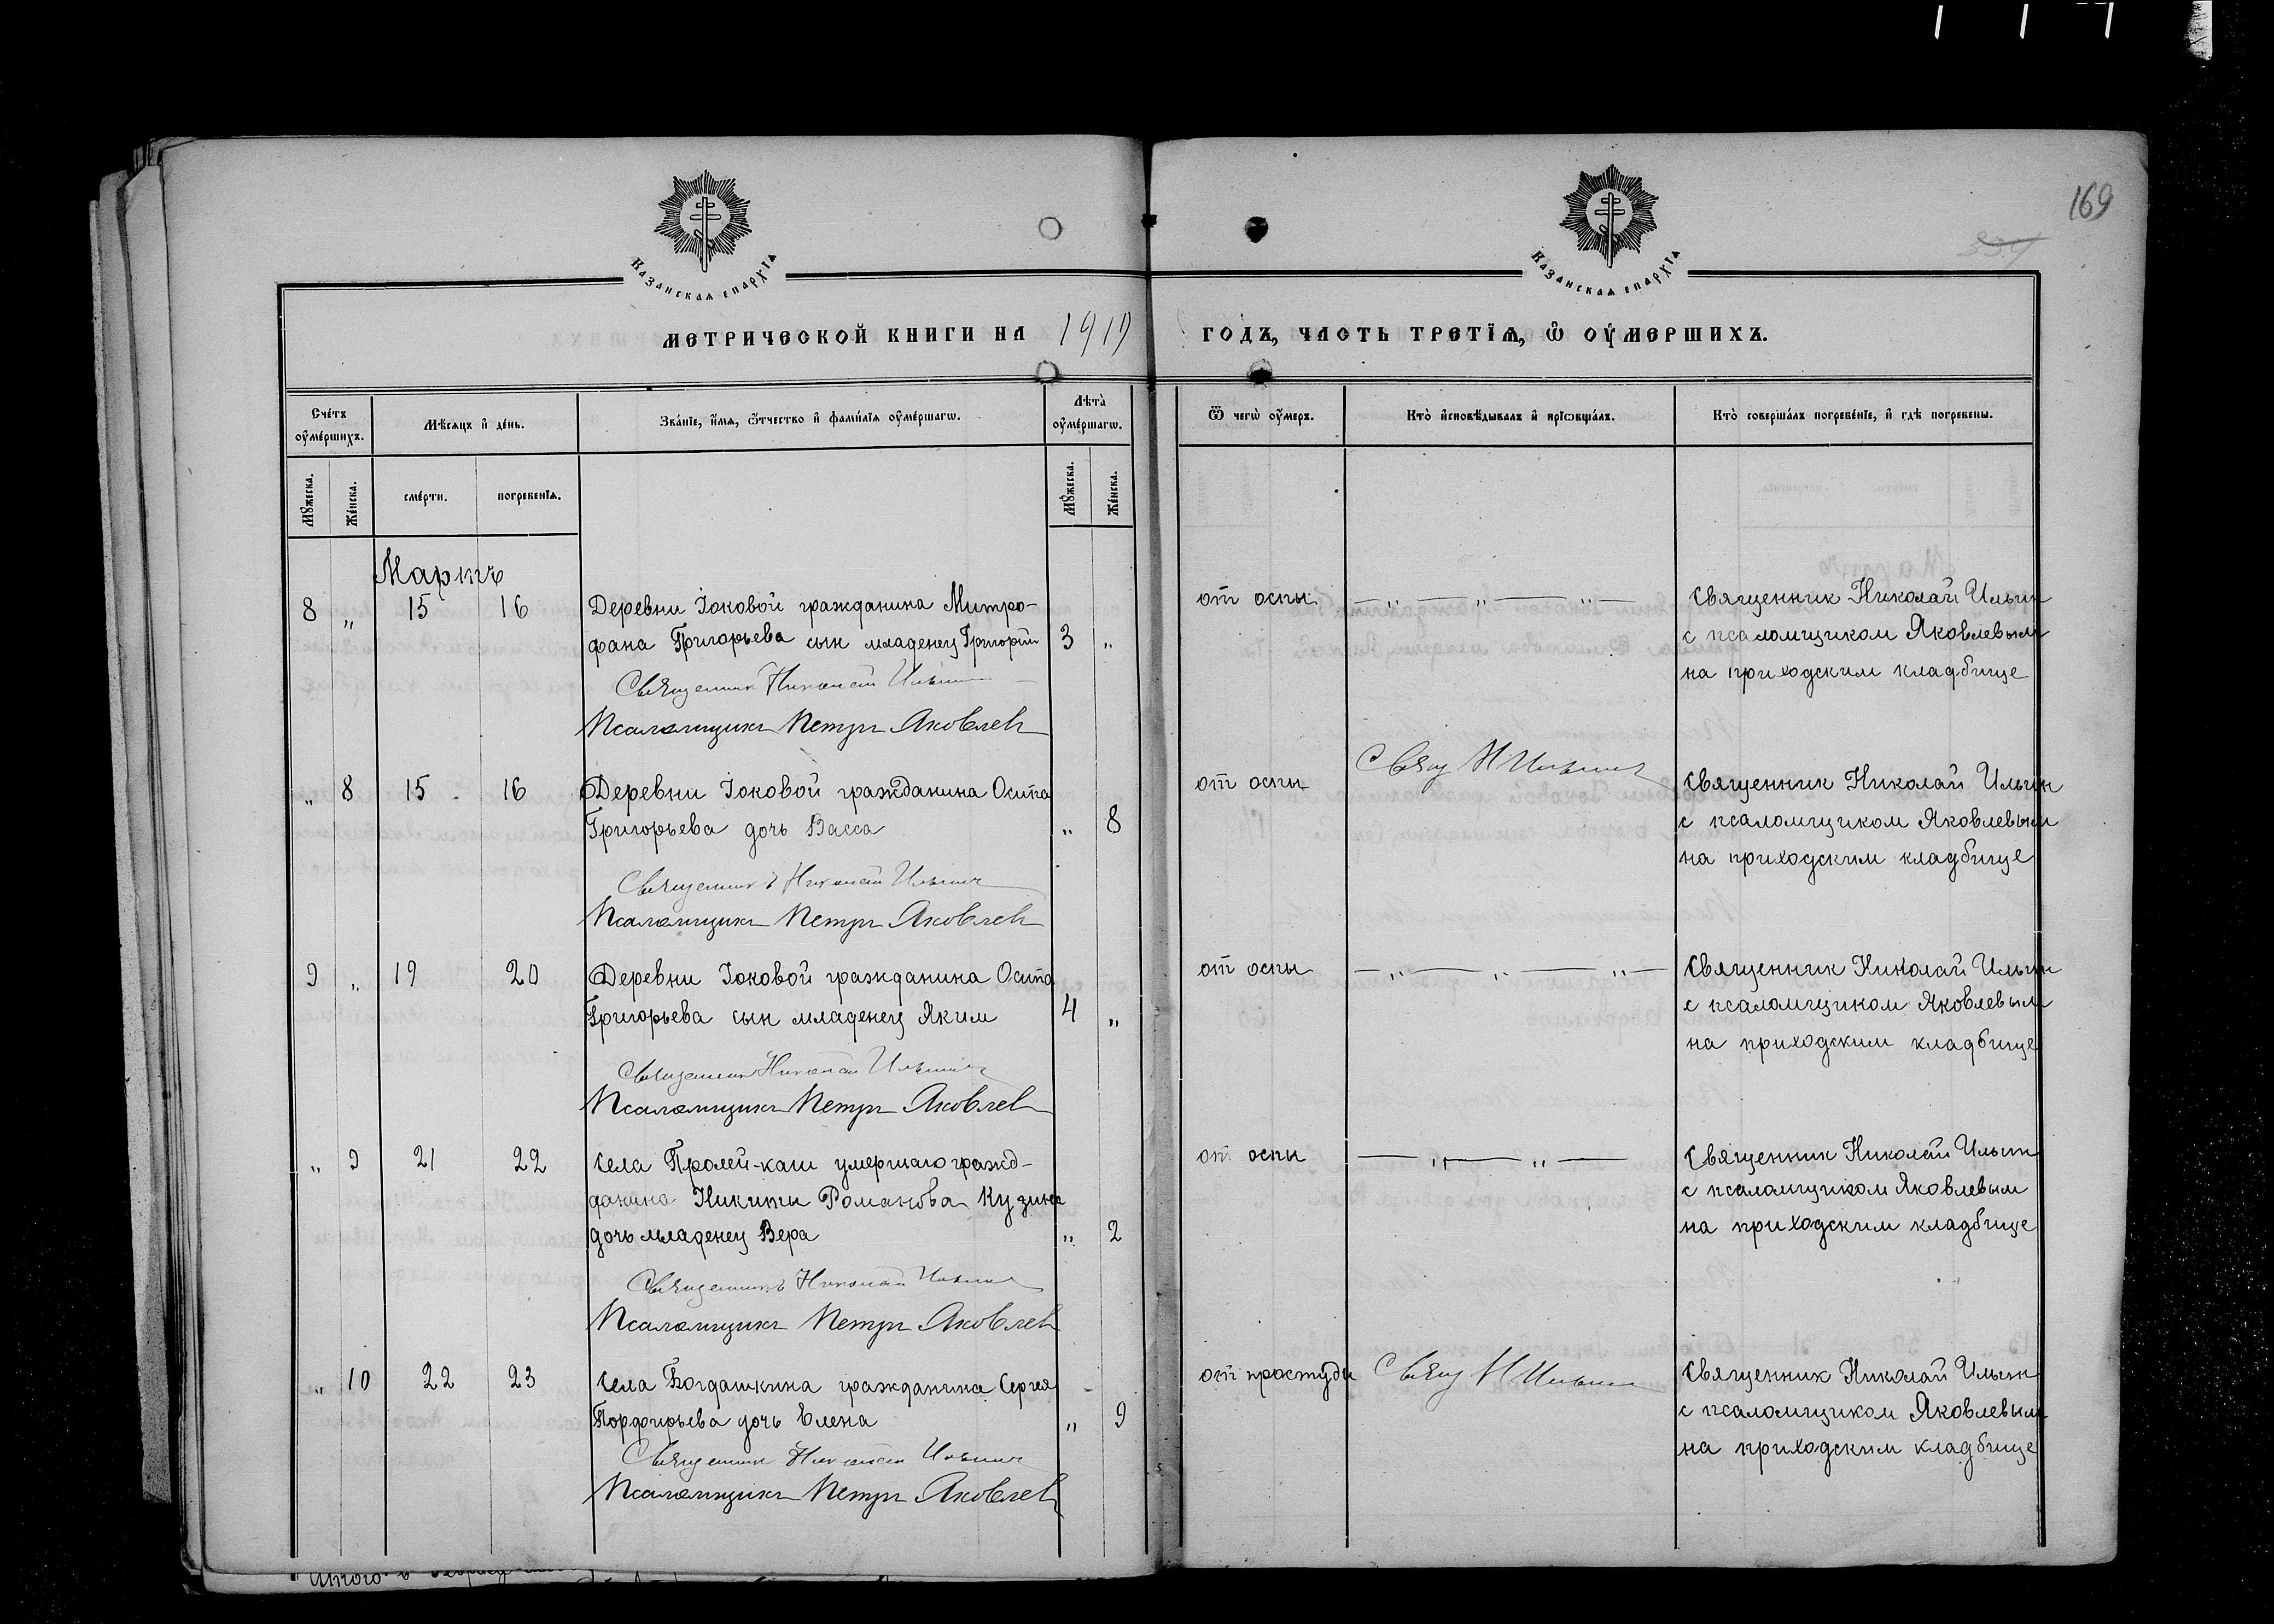 169
КАЗАНСКАѦ ЕПАРХІѦ
КАЗАНСКАѦ ЕПАРХІѦ
МЕТРИЧЕСКОЙ КНИГИ НА 1919 ГОДЪ, ЧАСТЬ ТРЕТІѦ, Ѿ ОУМЕРШИХЪ.
Счетъ оумершихъ.
Мѣсяцъ и день.
Званіе, имя, отчество и фамилія оумершагѡ.
Лѣта оумершагѡ.
Ѿ чегѡ оумеръ.
Кто исповѣдывалъ и пріѡбщалъ.
Кто совершалъ погребеніе, и гдѣ погребены.
Мꙋжеска.
Женска.
смерти.
погребенія.
Мꙋжеска.
Женска.
Мартъ
8 " 15 16 Деревни Іоковой гражданина Митро-
фана Григорьева сын младенец Григорий 3 "
Священник Николай Ильин
Псаломщикъ Петръ Яковлевъ
от оспы
Священник Николай Ильин
с псаломщиком Яковлевым
на приходским кладбище
" 8 15 16 Деревни Іоковой гражданина Осипа
Григорьева дочь Васса " 8
Священникъ Николай Ильин
Псаломщикъ Петръ Яковлевъ
от оспы
Свящ Н Ильин
Священник Николай Ильин
с псаломщиком Яковлевым
на приходским кладбище
9 " 19 20 Деревни Іоковой гражданина Осипа
Григорьева сын младенец Яким 4 "
Священник Николай Ильин
Псаломщикъ Петръ Яковлев
от оспы
Священник Николай Ильин
с псаломщиком Яковлевым
на приходским кладбище
" 9 21 22 Села Пролей-каш умершаго гражд-
данина Никити Романова Кузина
дочь младенец Вера " 2
Священникъ Николай Ильин
Псаломщикъ Петръ Яковлев
от оспы
Священник Николай Ильин
с псаломщиком Яковлевым
на приходским кладбище
" 10 22 23 Села Богдашкина гражданина Сергея
Порфирьева дочь Елена " 9
Священник Николай Ильин
Псаломщикъ Петръ Яковлев
от простуды
Свящ Н Ильин
Священник Николай Ильин
с псаломщиком Яковлевым
на приходским кладбище